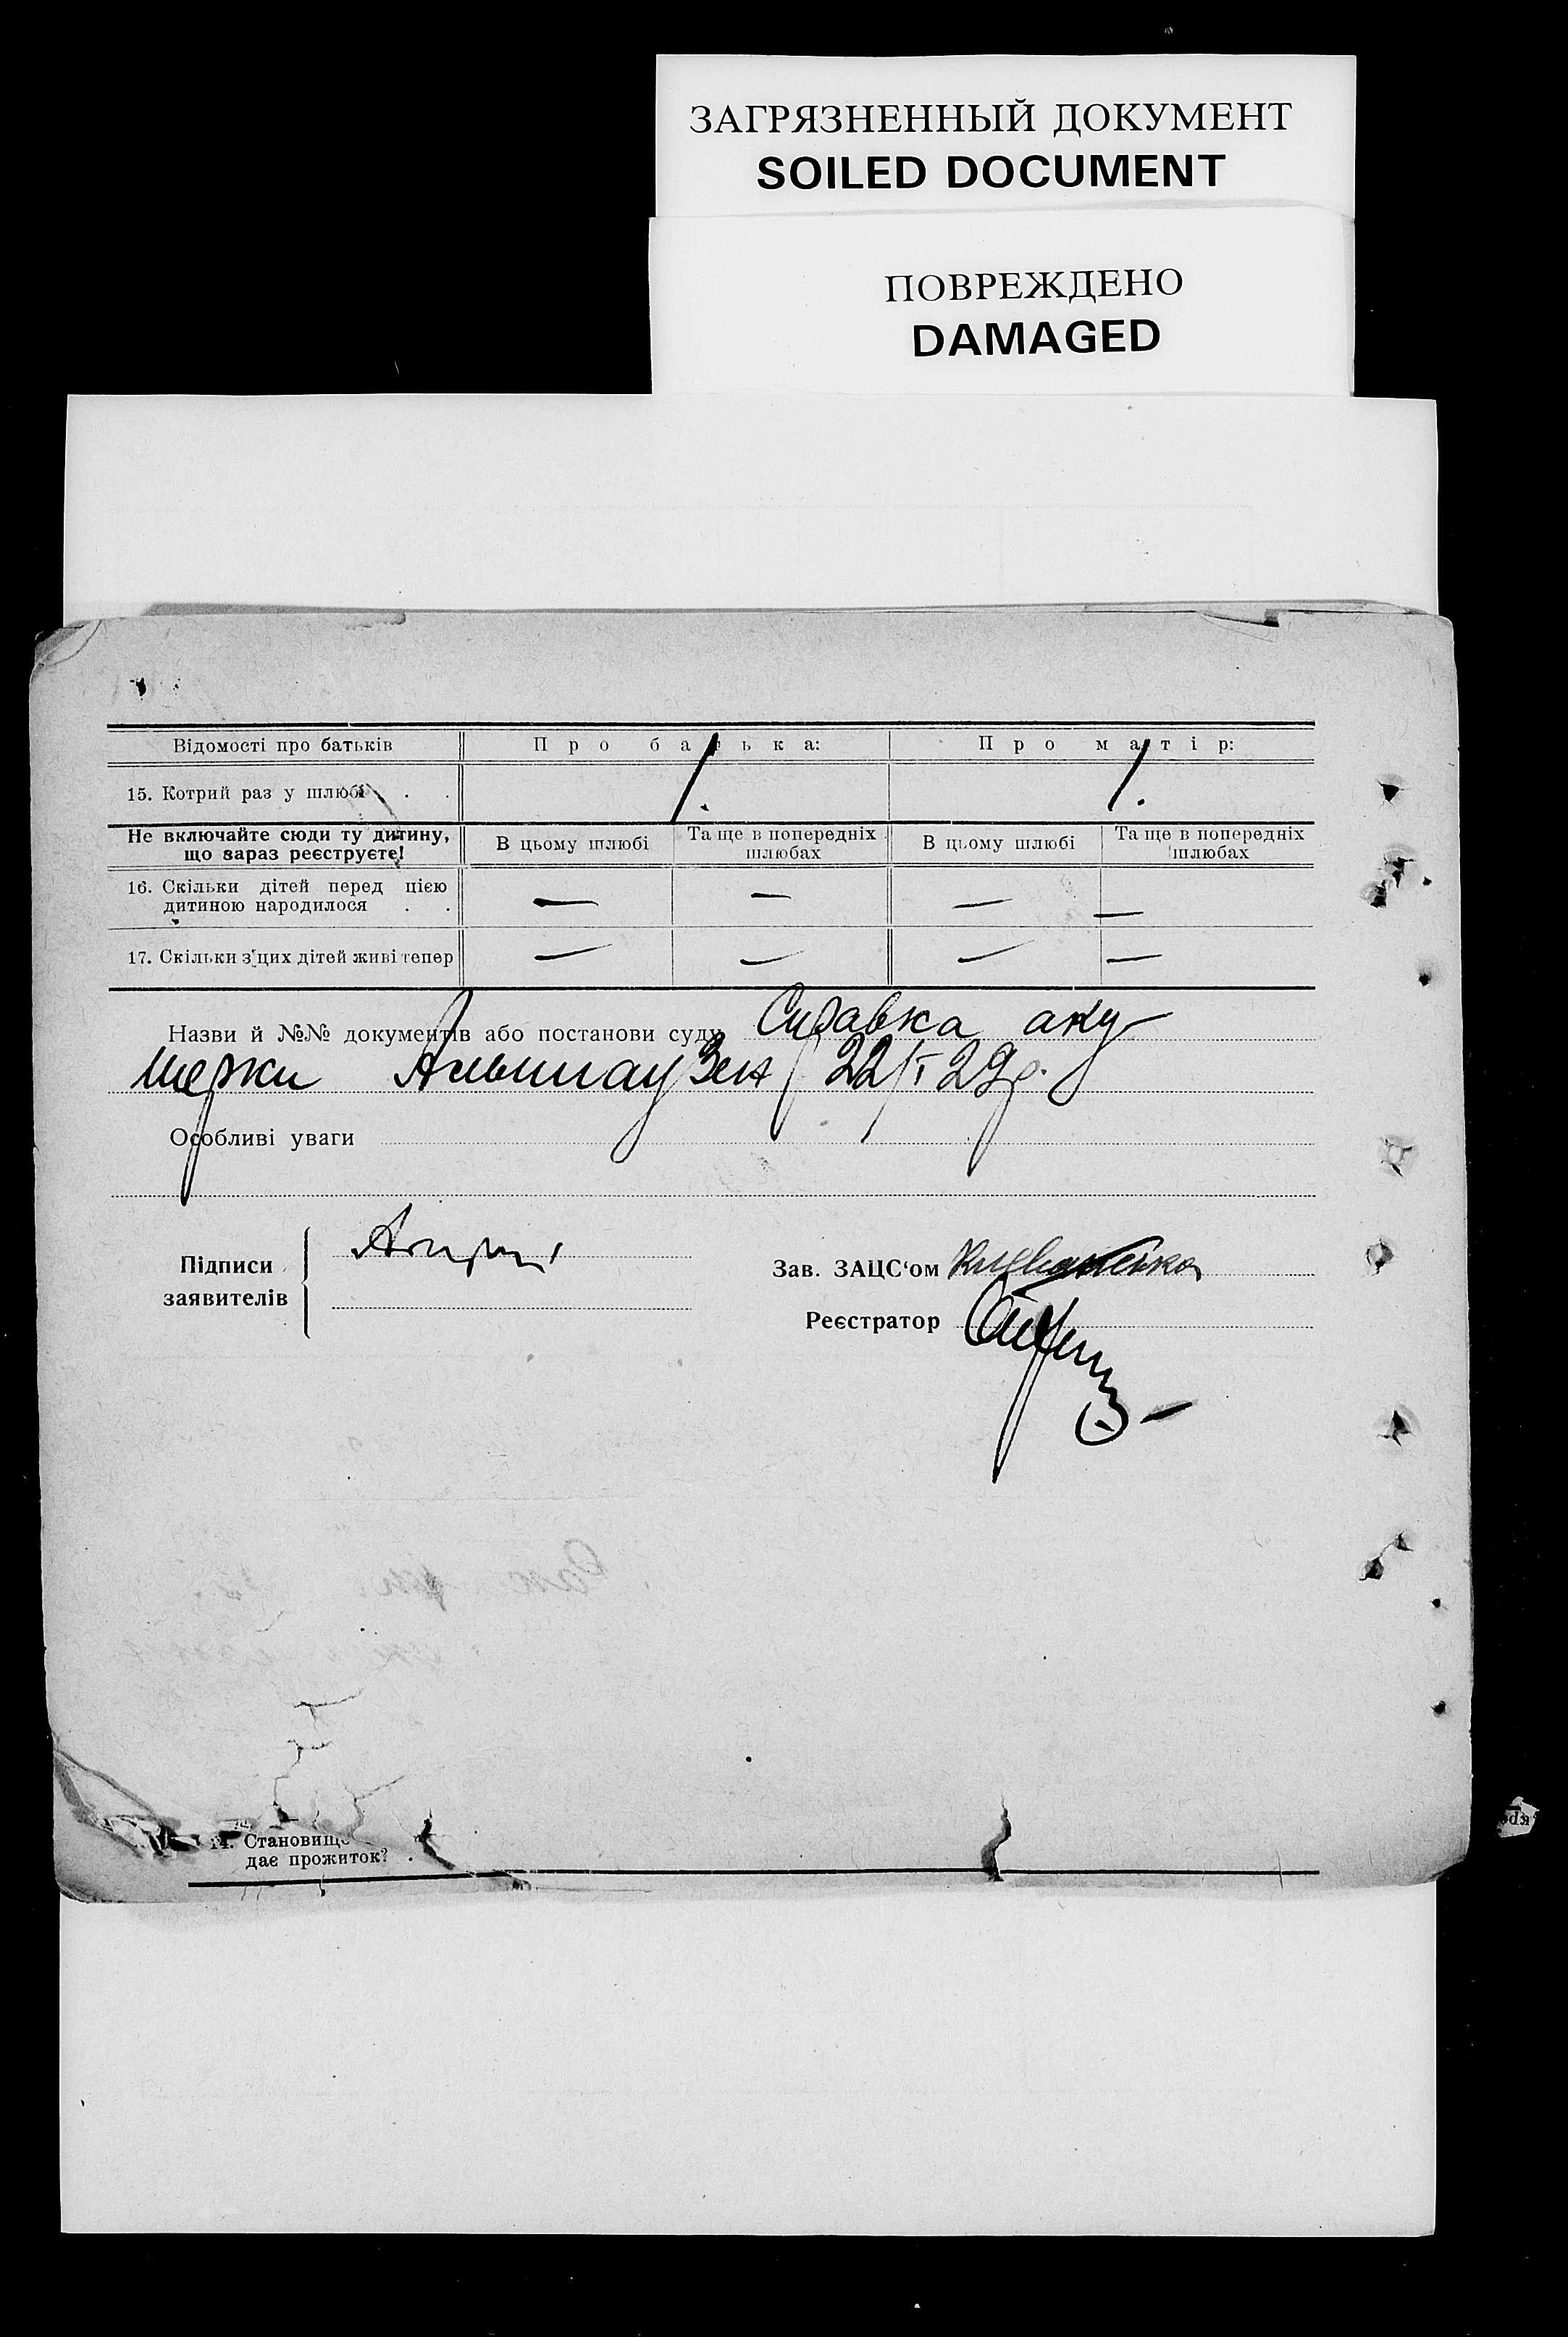 ЗАГРЯЗНЕННЫЙ ДОКУМЕНТ
SOILED DOCUMENT
ПОВРЕЖДЕНО
DAMAGED
Відомості про батьків Про батька: Про матір:
15. Котрий раз у шлюбі . . 1. 1.
Не включайте сюди ту дитину, що зараз реєструєте! В цьому шлюбі Та ще в попередніх шлюбах В цьому шлюбі Та ще в попередніх шлюбах
16. Скільки дітей перед цією
дитиною народилося . . — — — —
17. Скільки з цих дітей живі тепер — — — —
Назви й №№ документів або постанови суду Справка аку-
шерки 22/I 29р.
Особливі уваги
Підписи
заявителів
Зав. ЗАЦС'ом
Реєстратор
14. Становище
дає прожиток? .